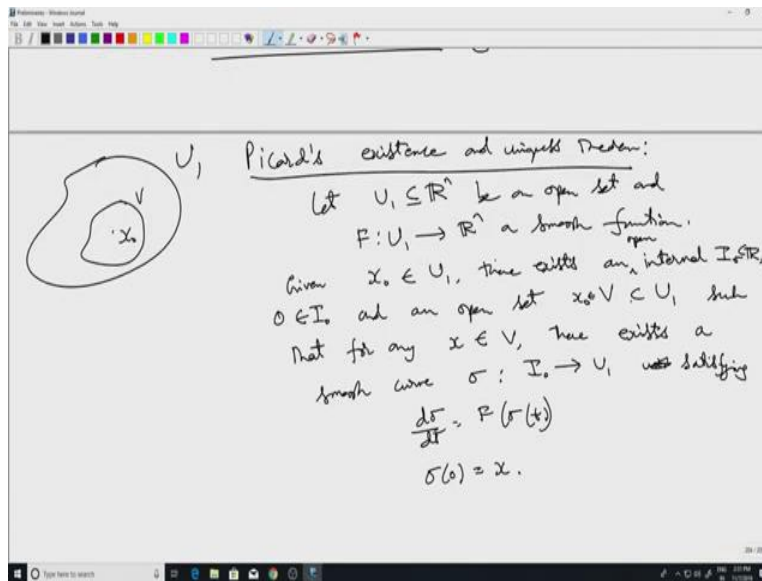 Preliminaries - Windows Journal
File Edit View Insert Actions Tools Help
U₁
V
x₀
Picard's existence and uniquess Theorem:
Let U₁ ⊆ ℝⁿ be an open set and
F : U₁ → ℝⁿ a smooth function.
Given x₀ ∈ U₁, there exists an open interval I₀ ⊆ ℝ,
0 ∈ I₀ and an open set x₀ ∈ V ⊂ U₁ such
that for any x ∈ V, there exists a
smooth curve σ : I₀ → U₁ satisfying
dσ/dt = F(σ(t))
σ(0) = x.
Type here to search